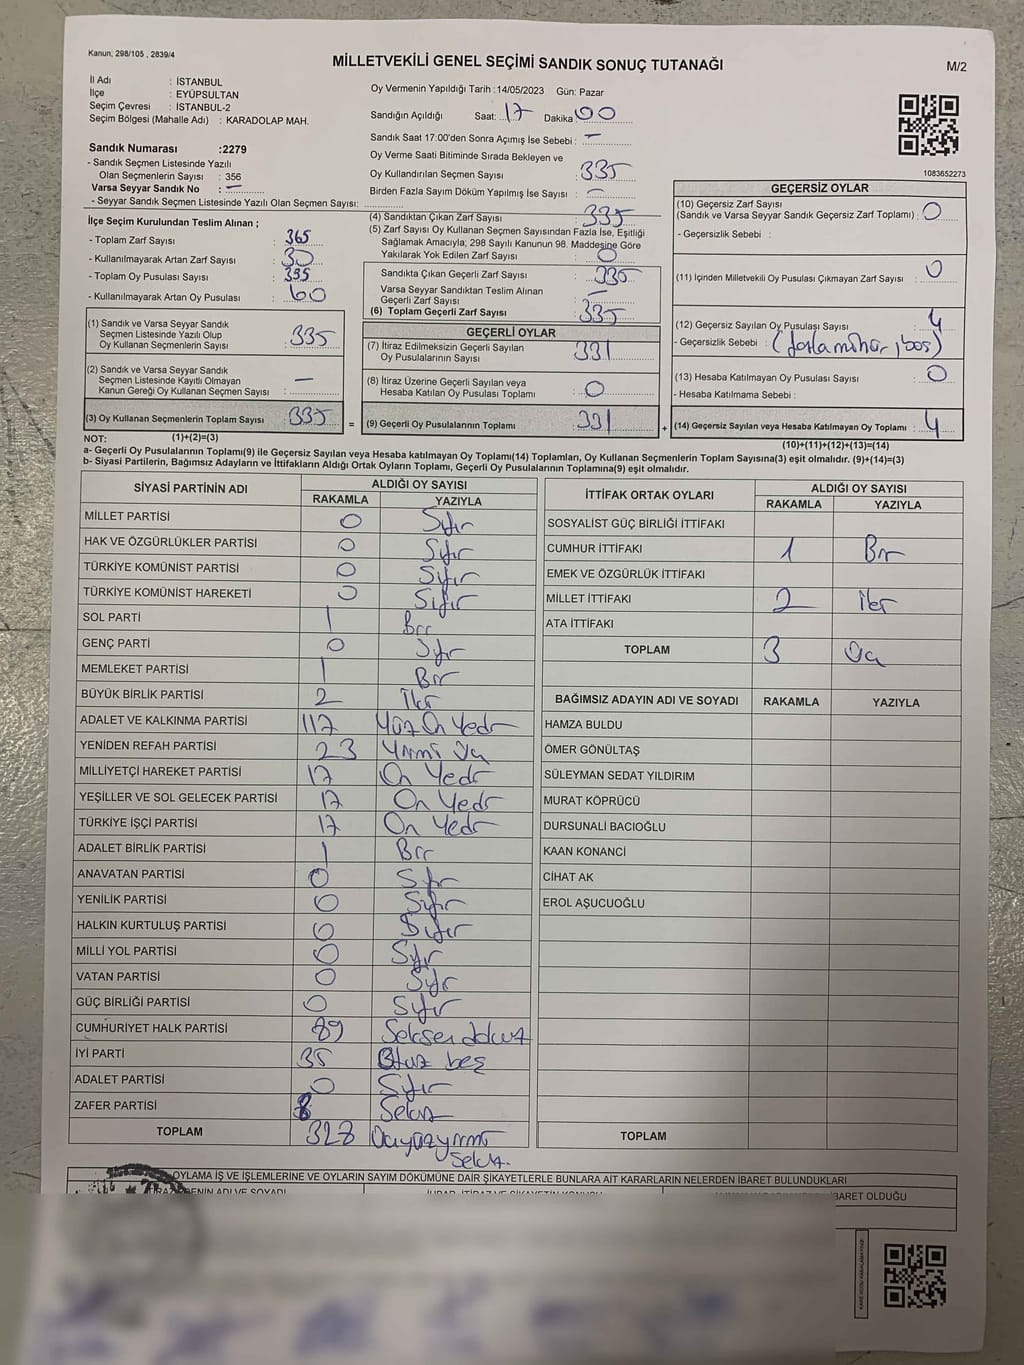 Kanun; 298/105 , 2839/4
MİLLETVEKİLİ GENEL SEÇİMİ SANDIK SONUÇ TUTANAĞI
M/2
İl Adı : İSTANBUL
İlçe : EYÜPSULTAN
Seçim Çevresi : İSTANBUL-2
Seçim Bölgesi (Mahalle Adı) : KARADOLAP MAH.
Sandık Numarası :2279
- Sandık Seçmen Listesinde Yazılı
Olan Seçmenlerin Sayısı : 356
Varsa Seyyar Sandık No : —
- Seyyar Sandık Seçmen Listesinde Yazılı Olan Seçmen Sayısı:
Oy Vermenin Yapıldığı Tarih :14/05/2023 Gün: Pazar
Sandığın Açıldığı Saat: 17 Dakika 00
Sandık Saat 17:00'den Sonra Açımış İse Sebebi : —
Oy Verme Saati Bitiminde Sırada Bekleyen ve
Oy Kullandırılan Seçmen Sayısı : 335
Birden Fazla Sayım Döküm Yapılmış İse Sayısı : —
1083652273
İlçe Seçim Kurulundan Teslim Alınan ;
- Toplam Zarf Sayısı : 365
- Kullanılmayarak Artan Zarf Sayısı : 30
- Toplam Oy Pusulası Sayısı : 395
- Kullanılmayarak Artan Oy Pusulası : 60
(1) Sandık ve Varsa Seyyar Sandık
Seçmen Listesinde Yazılı Olup
Oy Kullanan Seçmenlerin Sayısı : 335
(2) Sandık ve Varsa Seyyar Sandık
Seçmen Listesinde Kayıtlı Olmayan
Kanun Gereği Oy Kullanan Seçmen Sayısı : —
(3) Oy Kullanan Seçmenlerin Toplam Sayısı : 335
(4) Sandıktan Çıkan Zarf Sayısı : 335
(5) Zarf Sayısı Oy Kullanan Seçmen Sayısından Fazla İse, Eşitliği
Sağlamak Amacıyla; 298 Sayılı Kanunun 98. Maddesine Göre
Yakılarak Yok Edilen Zarf Sayısı : 0
Sandıkta Çıkan Geçerli Zarf Sayısı : 335
Varsa Seyyar Sandıktan Teslim Alınan
Geçerli Zarf Sayısı : —
(6) Toplam Geçerli Zarf Sayısı : 335
GEÇERLİ OYLAR
(7) İtiraz Edilmeksizin Geçerli Sayılan
Oy Pusulalarının Sayısı : 331
(8) İtiraz Üzerine Geçerli Sayılan veya
Hesaba Katılan Oy Pusulası Toplamı : 0
= (9) Geçerli Oy Pusulalarının Toplamı : 331
GEÇERSİZ OYLAR
(10) Geçersiz Zarf Sayısı
(Sandık ve Varsa Seyyar Sandık Geçersiz Zarf Toplamı) : 0
- Geçersizlik Sebebi :
(11) İçinden Milletvekili Oy Pusulası Çıkmayan Zarf Sayısı : 0
(12) Geçersiz Sayılan Oy Pusulası Sayısı : 4
- Geçersizlik Sebebi : boş)
(13) Hesaba Katılmayan Oy Pusulası Sayısı : 0
- Hesaba Katılmama Sebebi :
+ (14) Geçersiz Sayılan veya Hesaba Katılmayan Oy Toplamı : 4
NOT: (1)+(2)=(3)
(10)+(11)+(12)+(13)=(14)
a- Geçerli Oy Pusulalarının Toplamı(9) ile Geçersiz Sayılan veya Hesaba katılmayan Oy Toplamı(14) Toplamları, Oy Kullanan Seçmenlerin Toplam Sayısına(3) eşit olmalıdır. (9)+(14)=(3)
b- Siyasi Partilerin, Bağımsız Adayların ve İttifakların Aldığı Ortak Oyların Toplamı, Geçerli Oy Pusulalarının Toplamına(9) eşit olmalıdır.
SİYASİ PARTİNİN ADI ALDIĞI OY SAYISI
RAKAMLA YAZIYLA
MİLLET PARTİSİ 0 Sıfır
HAK VE ÖZGÜRLÜKLER PARTİSİ 0 Sıfır
TÜRKİYE KOMÜNİST PARTİSİ 0 Sıfır
TÜRKİYE KOMÜNİST HAREKETİ 0 Sıfır
SOL PARTİ 1 Bir
GENÇ PARTİ 0 Sıfır
MEMLEKET PARTİSİ 1 Bir
BÜYÜK BİRLİK PARTİSİ 2 İki
ADALET VE KALKINMA PARTİSİ 117 Yüz On Yedi
YENİDEN REFAH PARTİSİ 23 Yirmi Üç
MİLLİYETÇİ HAREKET PARTİSİ 17 On Yedi
YEŞİLLER VE SOL GELECEK PARTİSİ 17 On Yedi
TÜRKİYE İŞÇİ PARTİSİ 17 On Yedi
ADALET BİRLİK PARTİSİ 1 Bir
ANAVATAN PARTİSİ 0 Sıfır
YENİLİK PARTİSİ 0 Sıfır
HALKIN KURTULUŞ PARTİSİ 0 Sıfır
MİLLİ YOL PARTİSİ 0 Sıfır
VATAN PARTİSİ 0 Sıfır
GÜÇ BİRLİĞİ PARTİSİ 0 Sıfır
CUMHURİYET HALK PARTİSİ 89 Seksen dokuz
İYİ PARTİ 35 Otuz beş
ADALET PARTİSİ 0 Sıfır
ZAFER PARTİSİ 8 Sekiz
TOPLAM 328 Üçyüzyirmi
Sekiz.
İTTİFAK ORTAK OYLARI ALDIĞI OY SAYISI
RAKAMLA YAZIYLA
SOSYALİST GÜÇ BİRLİĞİ İTTİFAKI
CUMHUR İTTİFAKI 1 Bir
EMEK VE ÖZGÜRLÜK İTTİFAKI
MİLLET İTTİFAKI 2 İki
ATA İTTİFAKI
TOPLAM 3 Üç
BAĞIMSIZ ADAYIN ADI VE SOYADI RAKAMLA YAZIYLA
HAMZA BULDU
ÖMER GÖNÜLTAŞ
SÜLEYMAN SEDAT YILDIRIM
MURAT KÖPRÜCÜ
DURSUNALİ BACIOĞLU
KAAN KONANCİ
CİHAT AK
EROL AŞUCUOĞLU
TOPLAM
OYLAMA İŞ VE İŞLEMLERİNE VE OYLARIN SAYIM DÖKÜMÜNE DAİR ŞİKAYETLERLE BUNLARA AİT KARARLARIN NELERDEN İBARET BULUNDUKLARI
BARET OLDUĞU